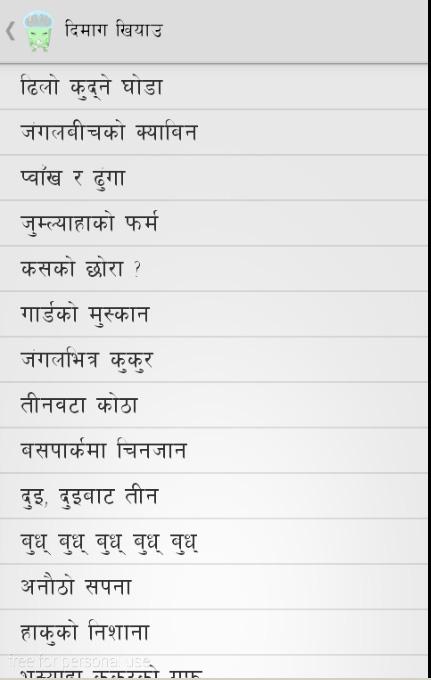 दिमाग खियाउ
ढिलो कुद्ने घोडा
जंगलबीचको क्याबिन
प्वाँख र ढुंगा
जुम्ल्याहाको फर्म
कसको छोरा ?
गार्डको मुस्कान
जंगलभित्र कुकुर
तीनवटा कोठा
बसपार्कमा चिनजान
दुइ, दुइबाट तीन
बुध् बुध् बुध् बुध् बुध्
अनौठो सपना
हाकुको निशाना
free for personal use